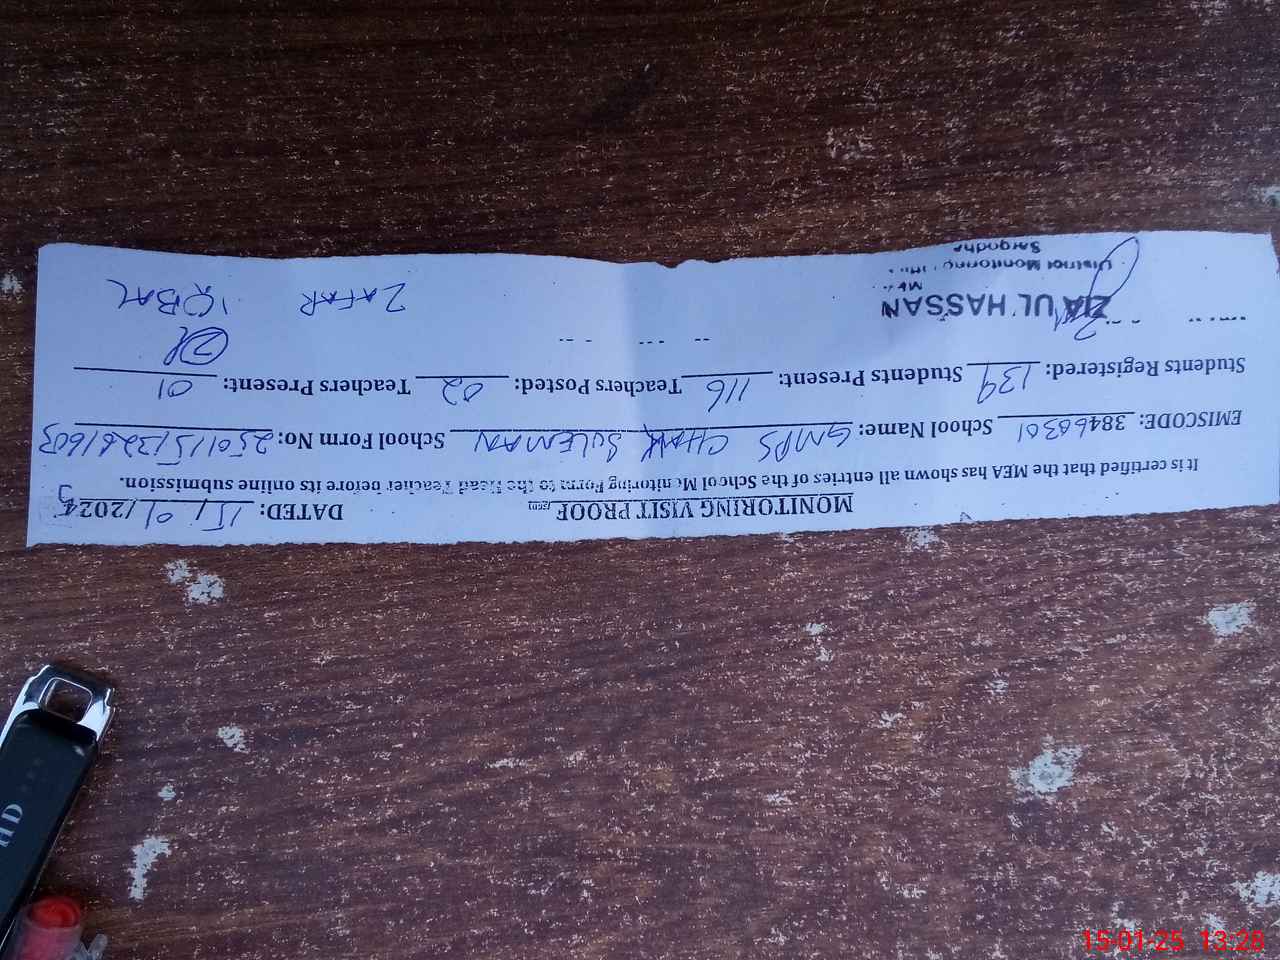 MONITORING VISIT PROOF DATED: 15/01/2025
It is certified that the MEA has shown all entries of the School Monitoring Form to the Head Teacher before its online submission.
EMISCODE: 38460301 School Name: GMPS CHAK SULEMAN School Form No: 250115132281603
Students Registered: 139 Students Present: 116 Teachers Posted: 02 Teachers Present: 01
ZIA UL HASSAN
District Monitoring
Sargodha
ZAFAR IQBAL
HD
15-01-25 13:28